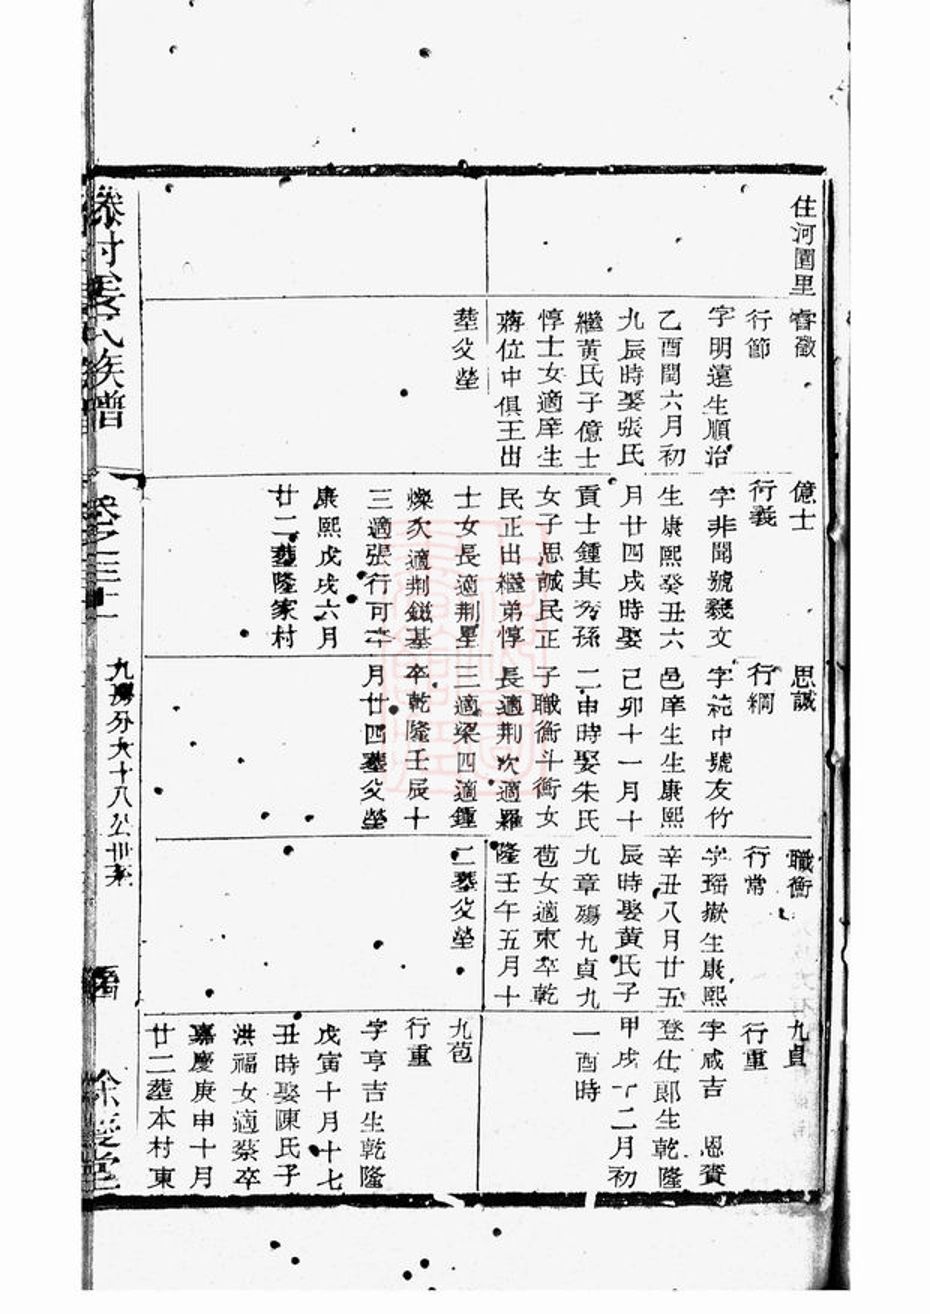 住河圍里
睿徵
行節
字明遠生順治
乙酉閏六月初
九辰時娶張氏
繼黃氏子億士
惇士女適庠生
蔣位中俱王出
塟父塋
億士
行義
字非聞號毅文
生康熙癸丑六
月廿四戌時娶
貢士鍾其秀孫
女子思誠民正
民正出繼弟惇
士女長適荆星
燦次適荆鎡基
三適張行可卒
康熙戊戌六月
廿二塟隆家村
思誠
行綱
字純中號友竹
邑庠生生康熙
己卯十一月十
二申時娶朱氏
子職衡斗衡女
長適荆次適羅
三適梁四適鍾
卒乾隆壬辰十
月廿四塟父塋
職衡
行常
字瑶嶽生康熙
辛丑八月廿五
辰時娶黃氏子
九章殤九貞九
苞女適束卒乾
隆壬午五月十
二塟父塋
九貞
行重
字咸吉 恩賚
登仕郎生乾隆
甲戌十二月初
一酉時
九苞
行重
字亨吉生乾隆
戊寅十月十七
丑時娶陳氏子
洪福女適蔡卒
嘉慶庚申十月
廿二塟本村東
村姜氏族譜
卷之三十
九房分大十八公世系
餘慶堂